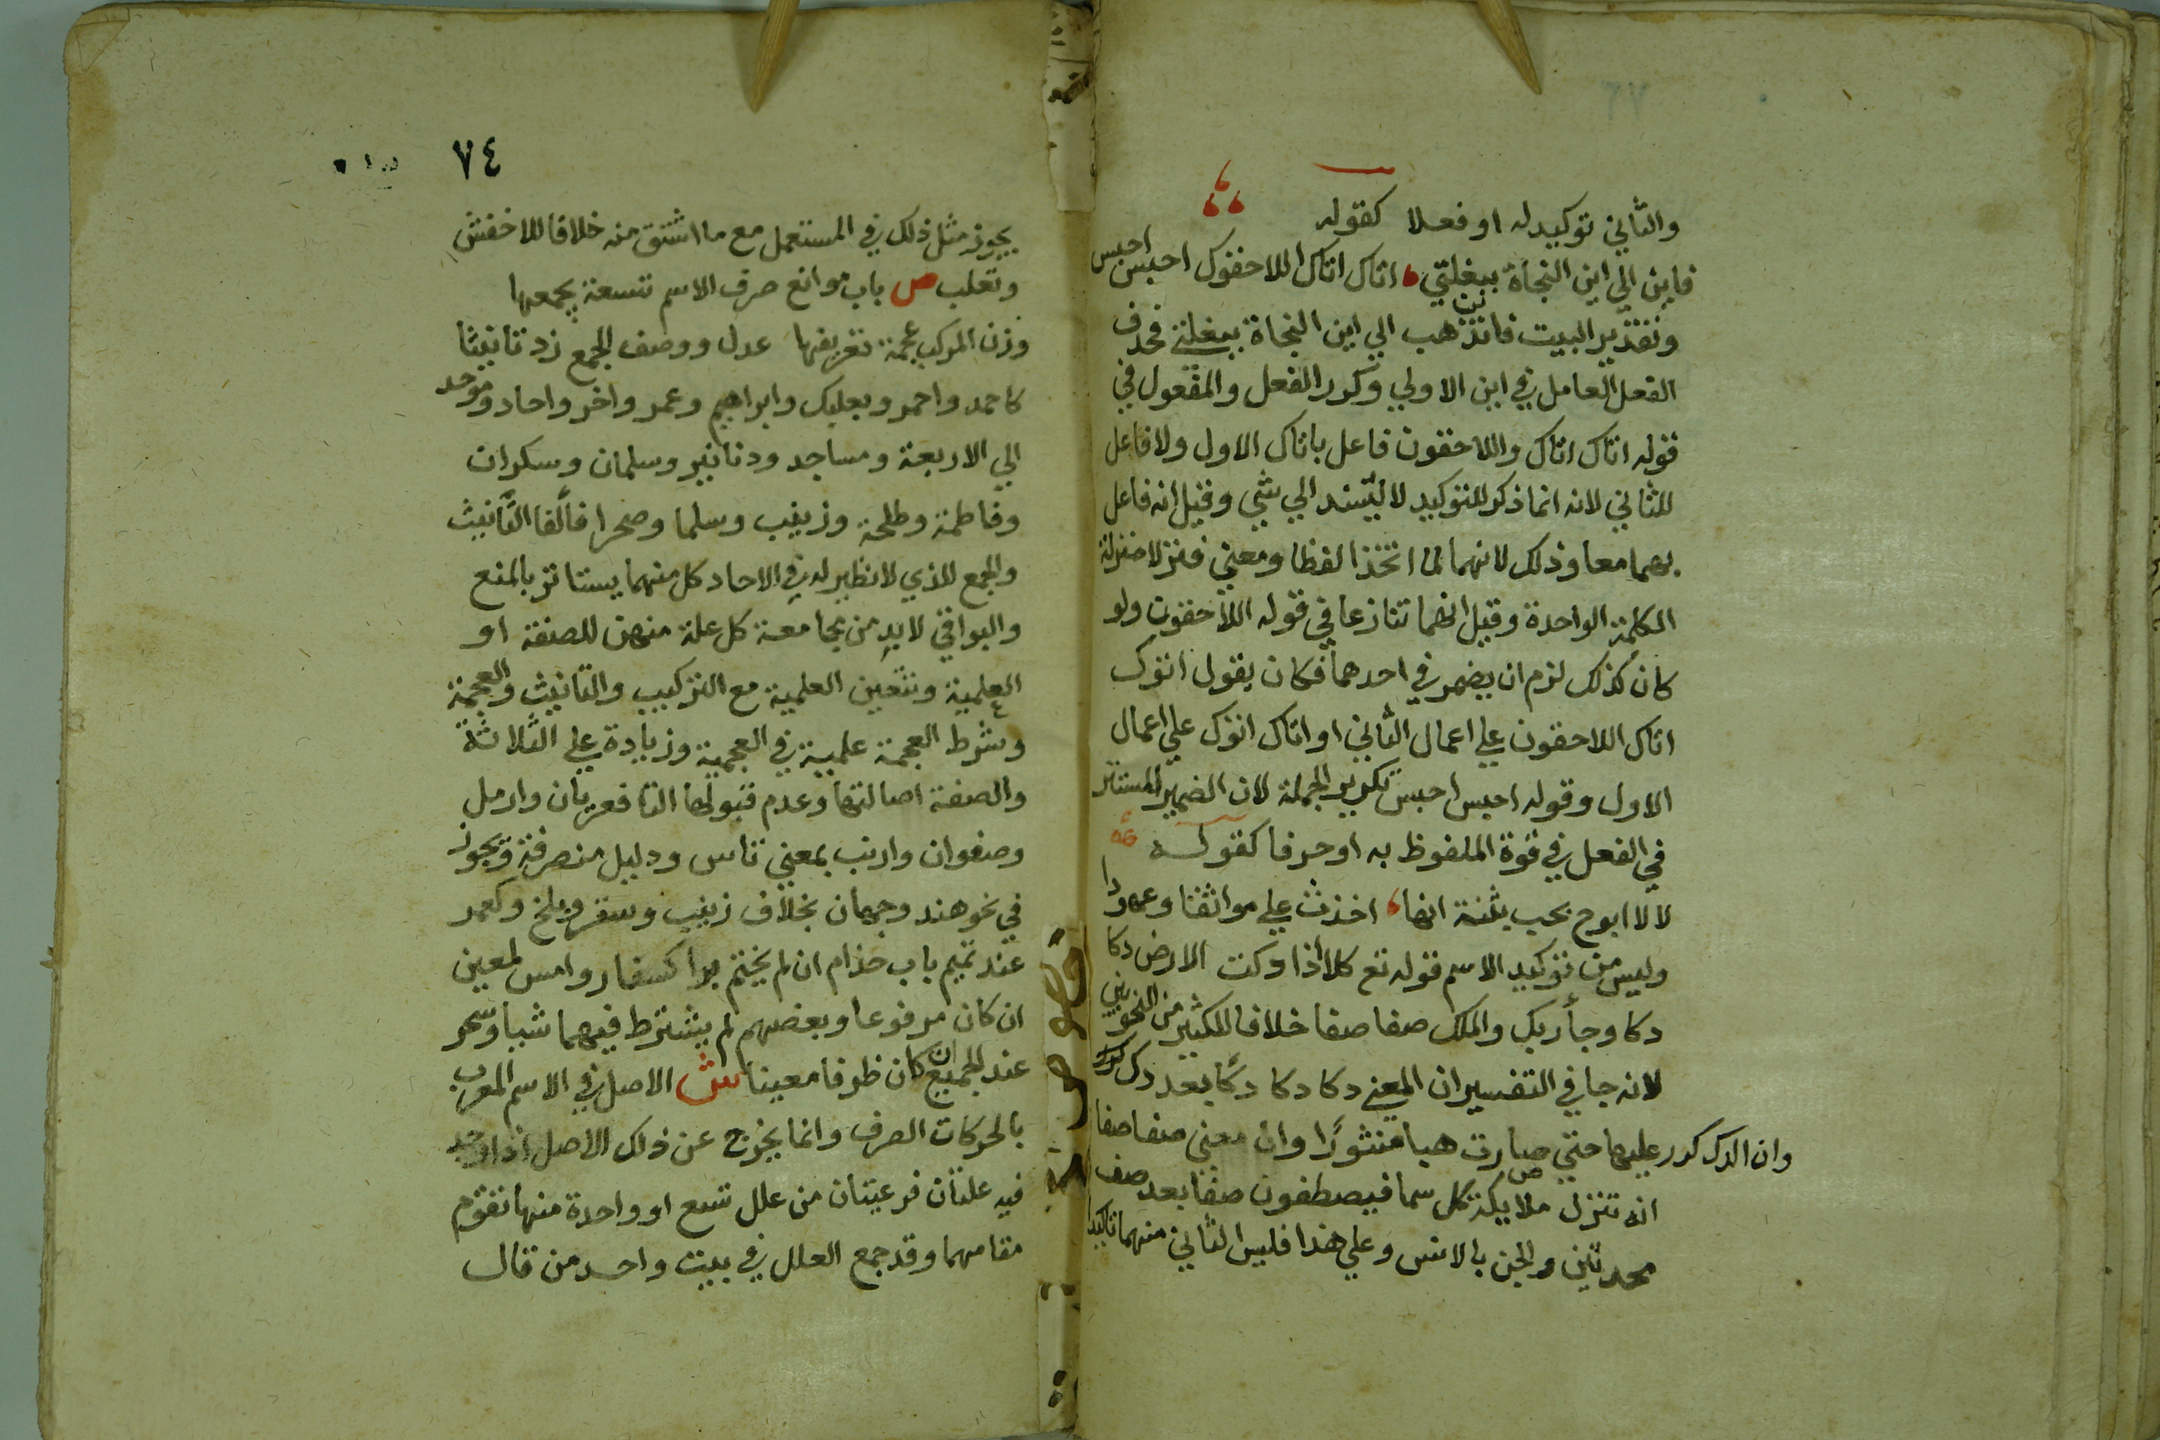 والثاني توكيد له او فعلا كقوله
فاين الي اين النجاة ببغلتي اتاك اتاك اللاحقوك احبس احبس
وتقدير البيت فاين تذهب الي اين النجاة ببغلتي فحذف
الفعل العامل في اين الاولي وكرر الفعل والمفعول في
قوله اتاك اتاك واللاحقون فاعل باتاك الاول ولا فاعل
للثاني لانه انما ذكر للتوكيد لا ليسند الي شي وقيل انه فاعل
بهما معا وذلك لانهما لما اتحدا لفظا ومعني فنزلا منزلة
الكلمة الواحدة وقيل انهما تنازعا في قوله اللاحقون ولو
كان كذلك لزم ان يضمر في احدهما فكان يقول اتوك
اتاك اللاحقون علي اعمال الثاني او اتاك اتوك علي اعمال
الاول وقوله احبس احبس تكرير الجملة لان الضمير المستتر
في الفعل في قوة الملفوظ به او حرفا كقوله
لا لا ابوح بحب بثنة انها اخذت علي مواثقا وعهودا
وليس من توكيد الاسم قوله تع كلا اذا دكت الارض دكا
دكا وجا ربك والملك صفا صفا خلافا لكثير من النحويين
لانه جا في التفسير ان المعني دكا دكا دكا بعد دك
وان الدك كرر عليها حتي صارت هبا منثورا وان معني صفا صفا
انه تنزل ملايكة كل سما فيصطفون صفا بعد صف
محدقين بالجن والانس وعلي هذا فليس الثاني منهما تاكيدا
٧٤
يجوز مثل ذلك في المستعمل مع ما اشتق منه خلافا للاخفش
وثعلب ص باب موانع صرف الاسم تسعة يجمعها
وزن المركب عجمة تعريفها عدل ووصف الجمع زد تانيثا
كاحمد واحمر وبعلبك وابراهيم وعمر واخر واحاد وموحد
الي الاربعة ومساجد ودنانير وسلمان وسكران
وفاطمة وطلحة وزينب وسلما وصحرا فالفا التانيث
والجمع الذي لا نظير له في الاحاد كل منهما يستاثر بالمنع
والبواقي لا بد من مجامعة كل علة منهن للصفة او
العلمية وتتعين العلمية مع التركيب والتانيث والعجمة
وشرط العجمة علمية في العجمية وزيادة علي الثلاثة
والصفة اصالتها وعدم قبولها التا فعريان وارمل
وصفوان وارنب بمعني قاس ودليل منصرفة ويجوز
في نحو هند وجهان بخلاف زينب وسقر وبلخ وكعمر
عند تميم باب حذام ان لم يختم برا كسفار وامس لمعين
ان كان مرفوعا وبعضهم لم يشترط فيهما شيا وسحر
عند الجميع ان كان ظرفا معينا ش الاصل في الاسم المعرب
بالحركات الصرف وانما يخرج عن ذلك الاصل اذا وجد
فيه علتان فرعيتان من علل تسع او واحدة منها تقوم
مقامهما وقد جمع العلل في بيت واحد من قال